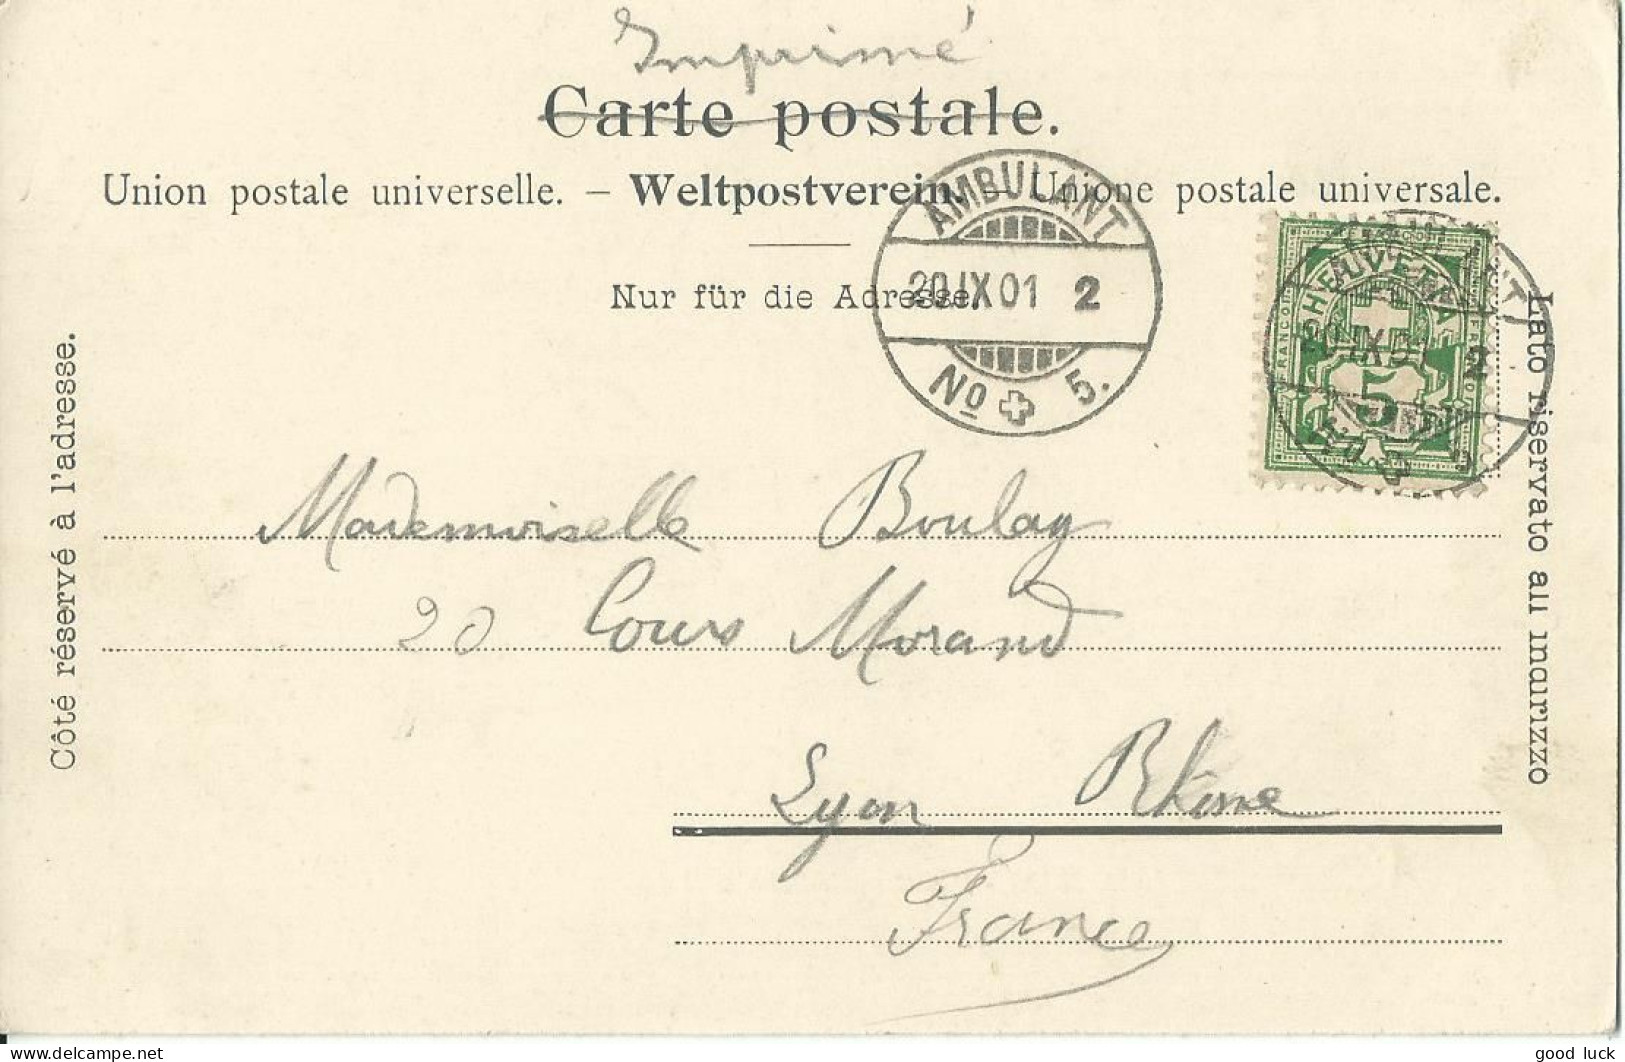 Imprimé
Carte postale.
Union postale universelle. – Weltpostverein. – Unione postale universale.
Nur für die Adresse.
AMBULANT
20.IX.01 2
No 5.
HELVETIA
FRANCO
5
20.IX.01 2
Côté réservé à l'adresse.
Lato riservato all indirizzo
Mademoiselle Boulay
20 Cours Morand
Lyon Rhône
France
good luck